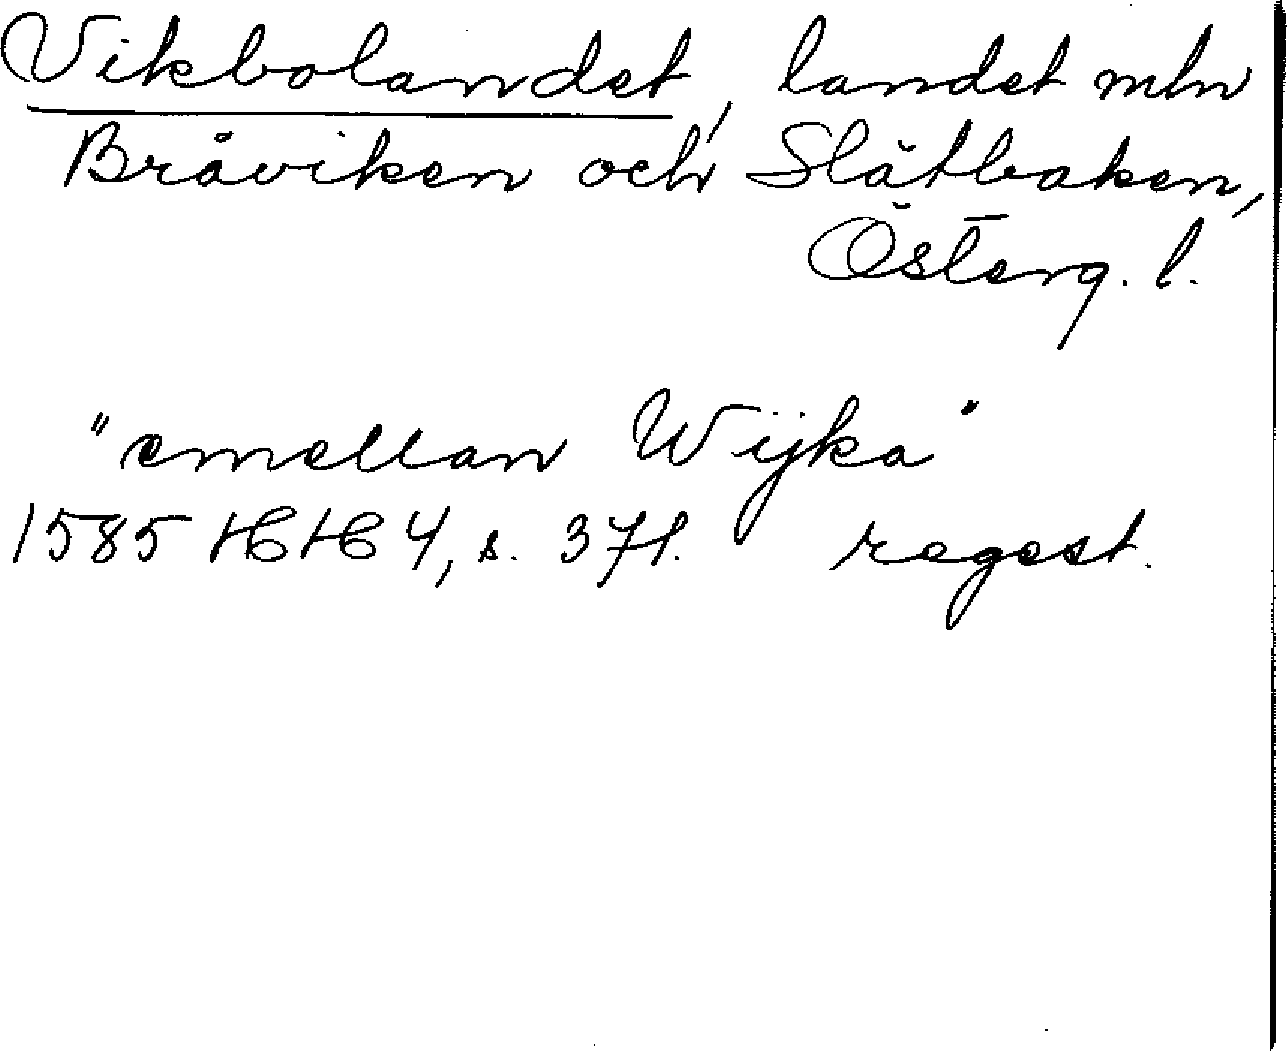 Vikbolandet, landet mln
Bråviken och Slätbaken,
Österg. l.
"emellan Wijka"
1585 HH 4, s. 37f. regest.